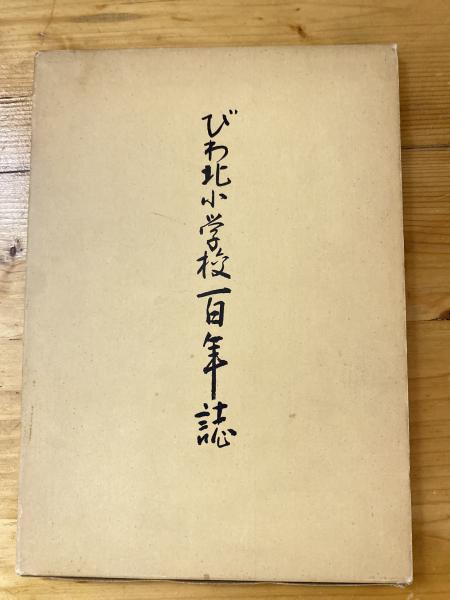 びわ北小学校百年誌